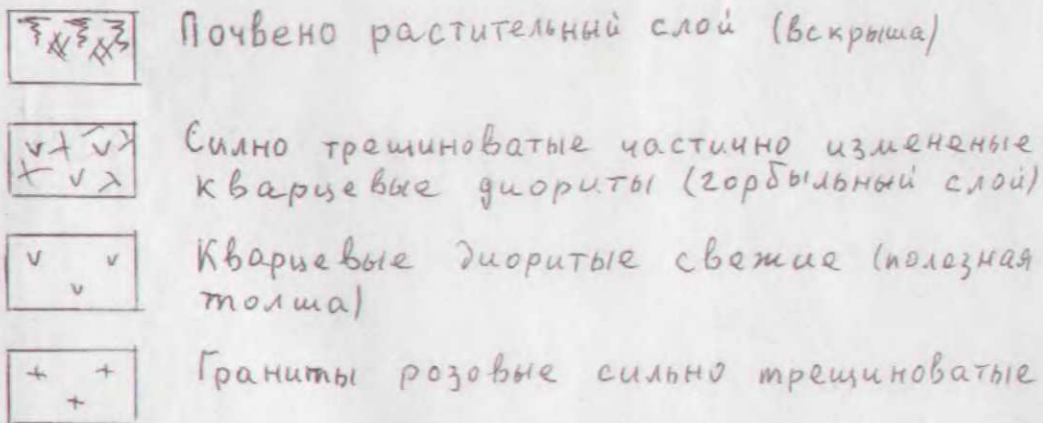 Почвено растительный слой (вскрыша)
Силно трещиноватые частично измененые
кварцевые диориты (горбыльный слой)
Кварцевые диоритые свежие (полезная
толша)
Граниты розовые сильно трещиноватые